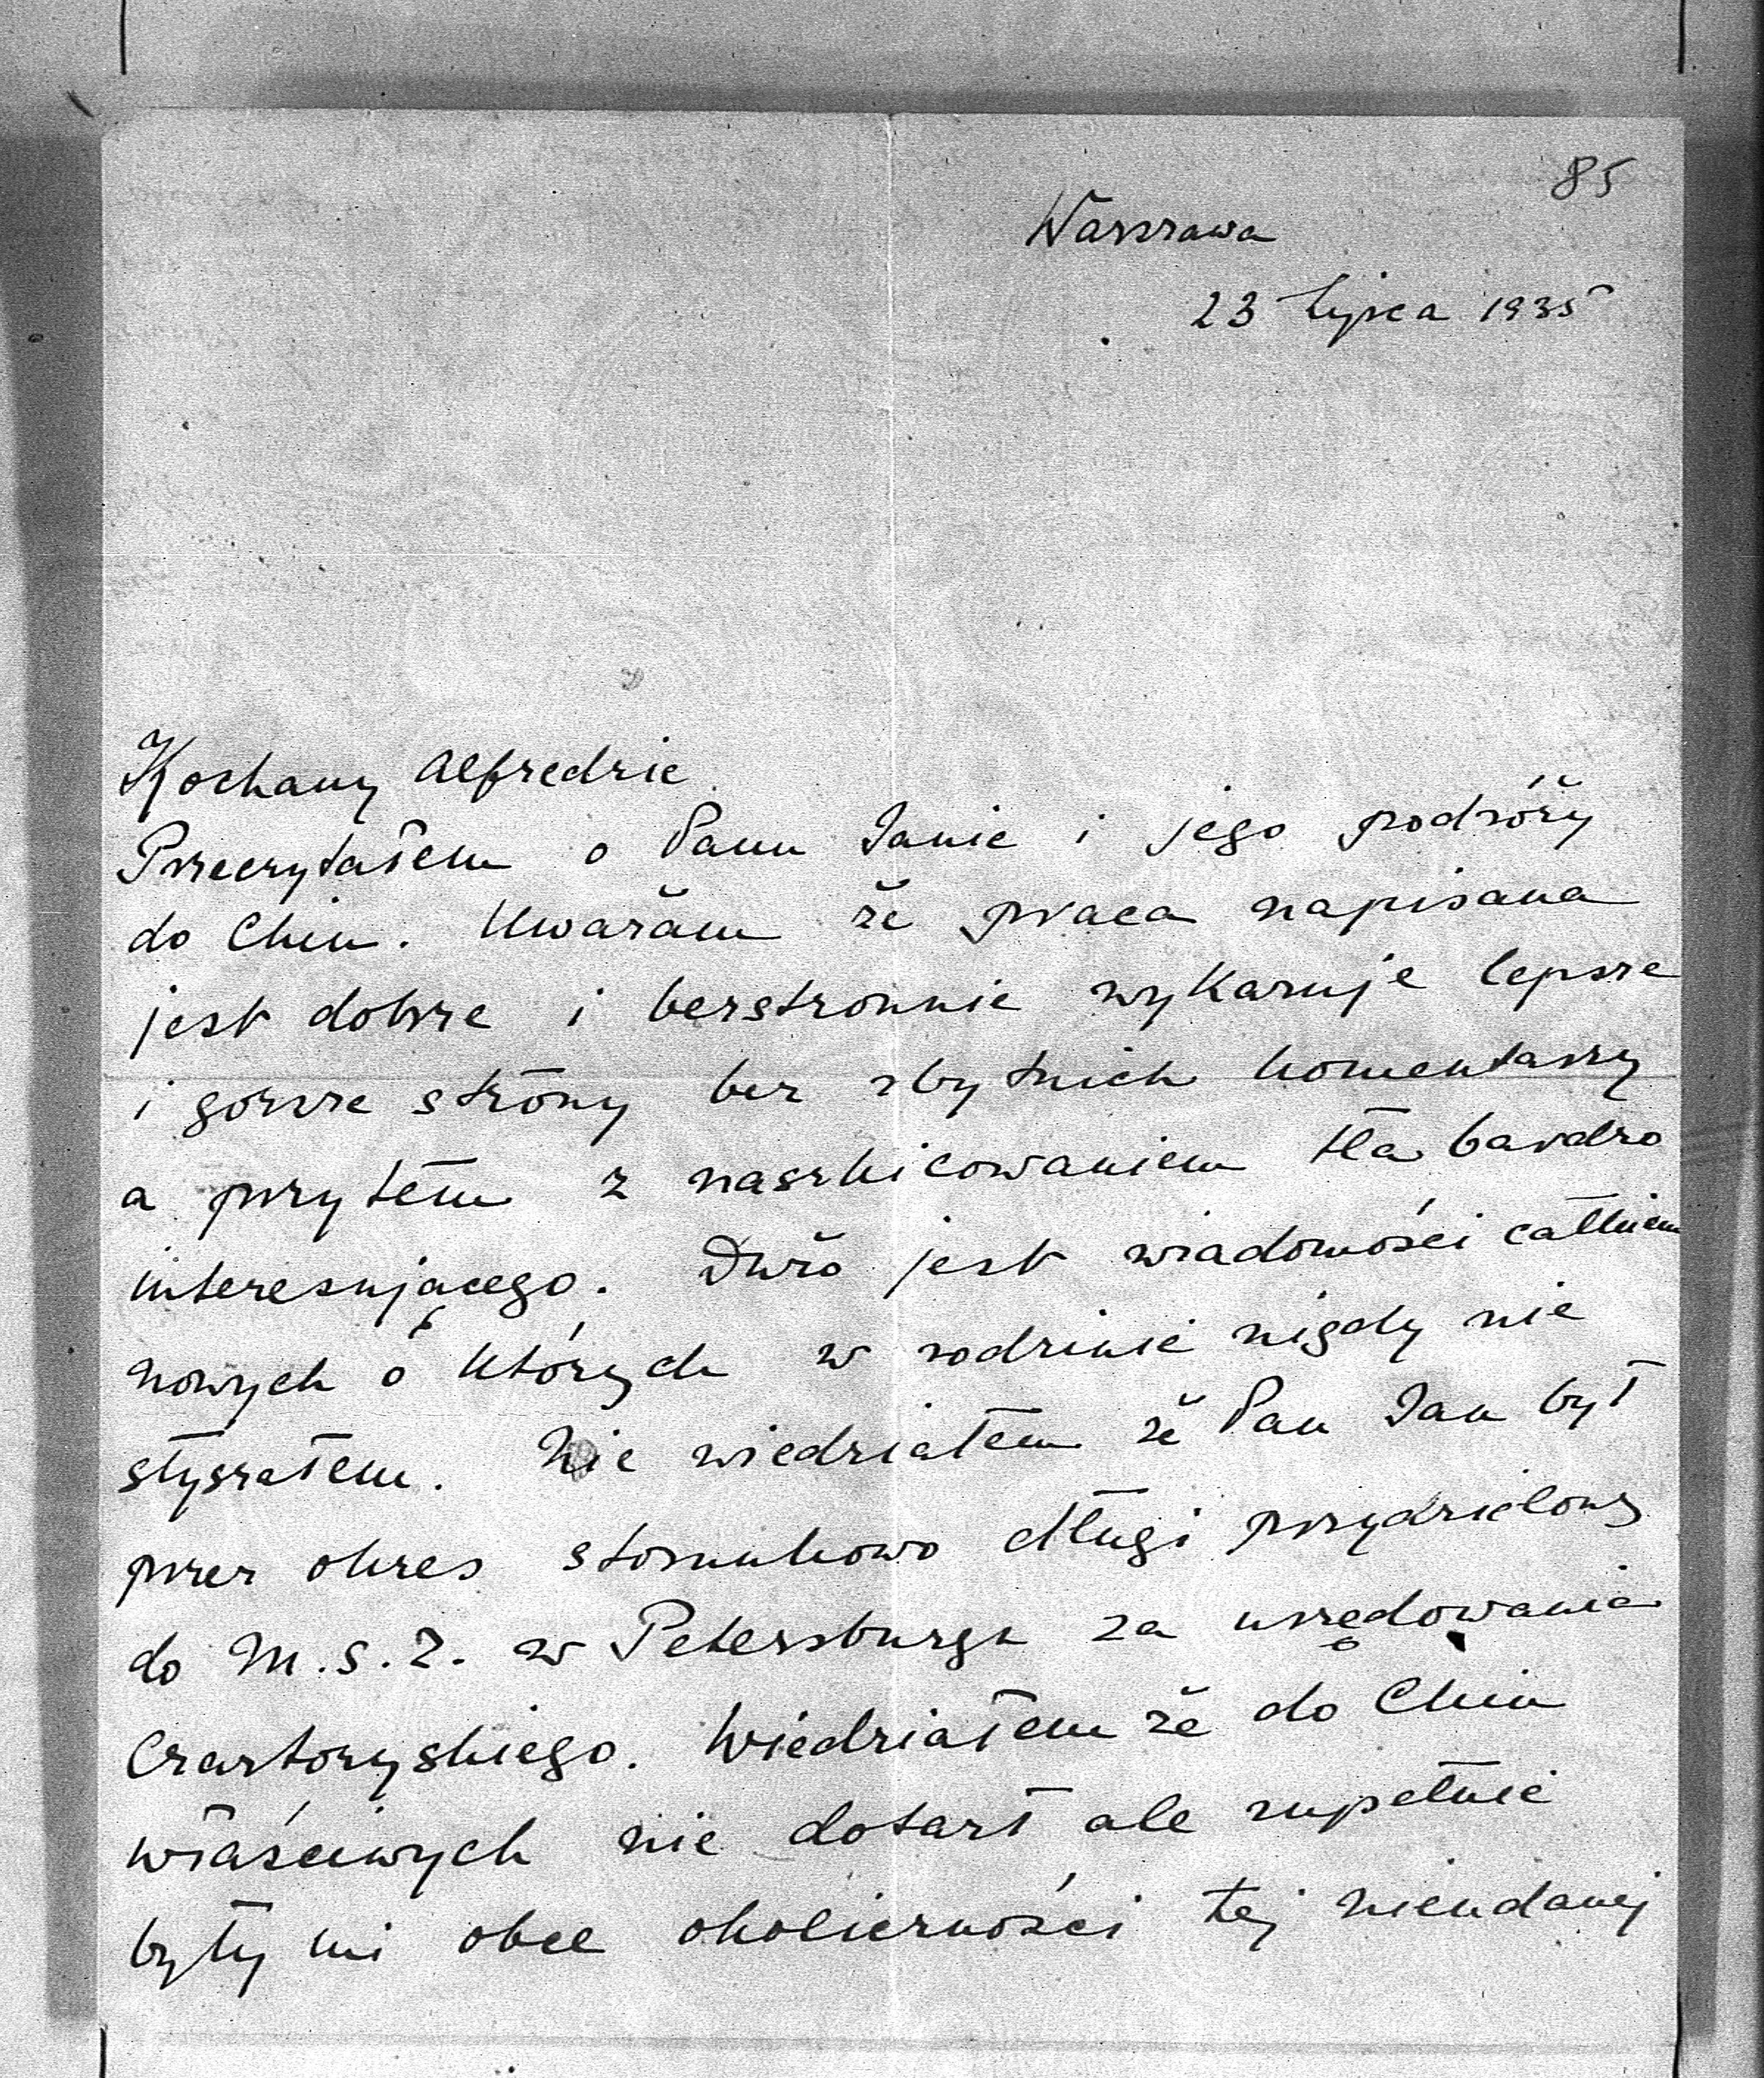 85
Warszawa
23 Lipca 1935
Kochany Alfredzie
Przeczytałem o Panu Janie i jego podróży
do Chin. Uważam że praca napisana
jest dobrze i bezstronnie wykazuje lepsze
i gorsze strony bez zbytnich komentarzy
a przytem z naszkicowaniem tła bardzo
interesującego. Dużo jest wiadomości całkiem
nowych o których w rodzinie nigdy nie
słyszałem. Nie wiedziałem że Pan Jan był
przez okres stosunkowo długi przydzielony
do M.S.Z. w Petersburgu za urzędowania
Czartoryskiego. Wiedziałem że do Chin
właściwych nie dotarł ale zupełnie
były mi obce okoliczności tej nieudanej